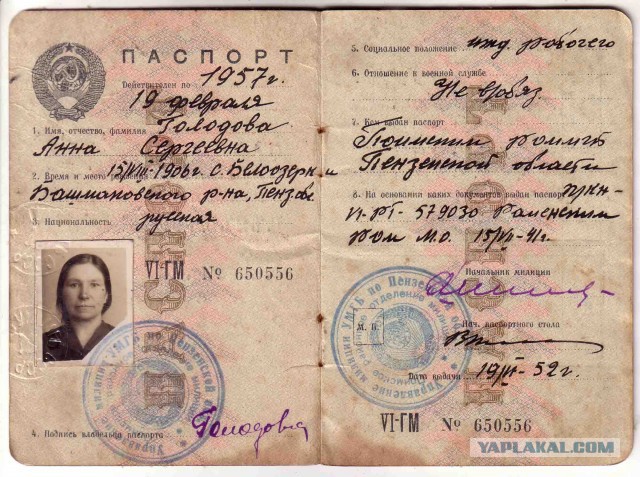 ПАСПОРТ
Действителен по 1957 г.
19 февраля
1. Имя, отчество, фамилия Голодова
Анна Сергеевна
2. Время и место рождения 15/VIII-1906г. с. Белоозерки
Башмаковского р-на, Пензов.
3. Национальность русская
VI-ГМ № 650556
4. Подпись владельца паспорта Голодова
5. Социальное положение ижд. рабочего
6. Отношение к военной службе
Не обяз.
7. Кем выдан паспорт
Поимским
Пензенской области
8. На основании каких документов выдан паспорт
579030 Раменским
ром М.О. 15/VII-41г.
Начальник милиции
М. П.
Нач. паспортного стола
Дата выдачи 19/II-52г.
VI-ГМ № 650556
YAPLAKAL.COM